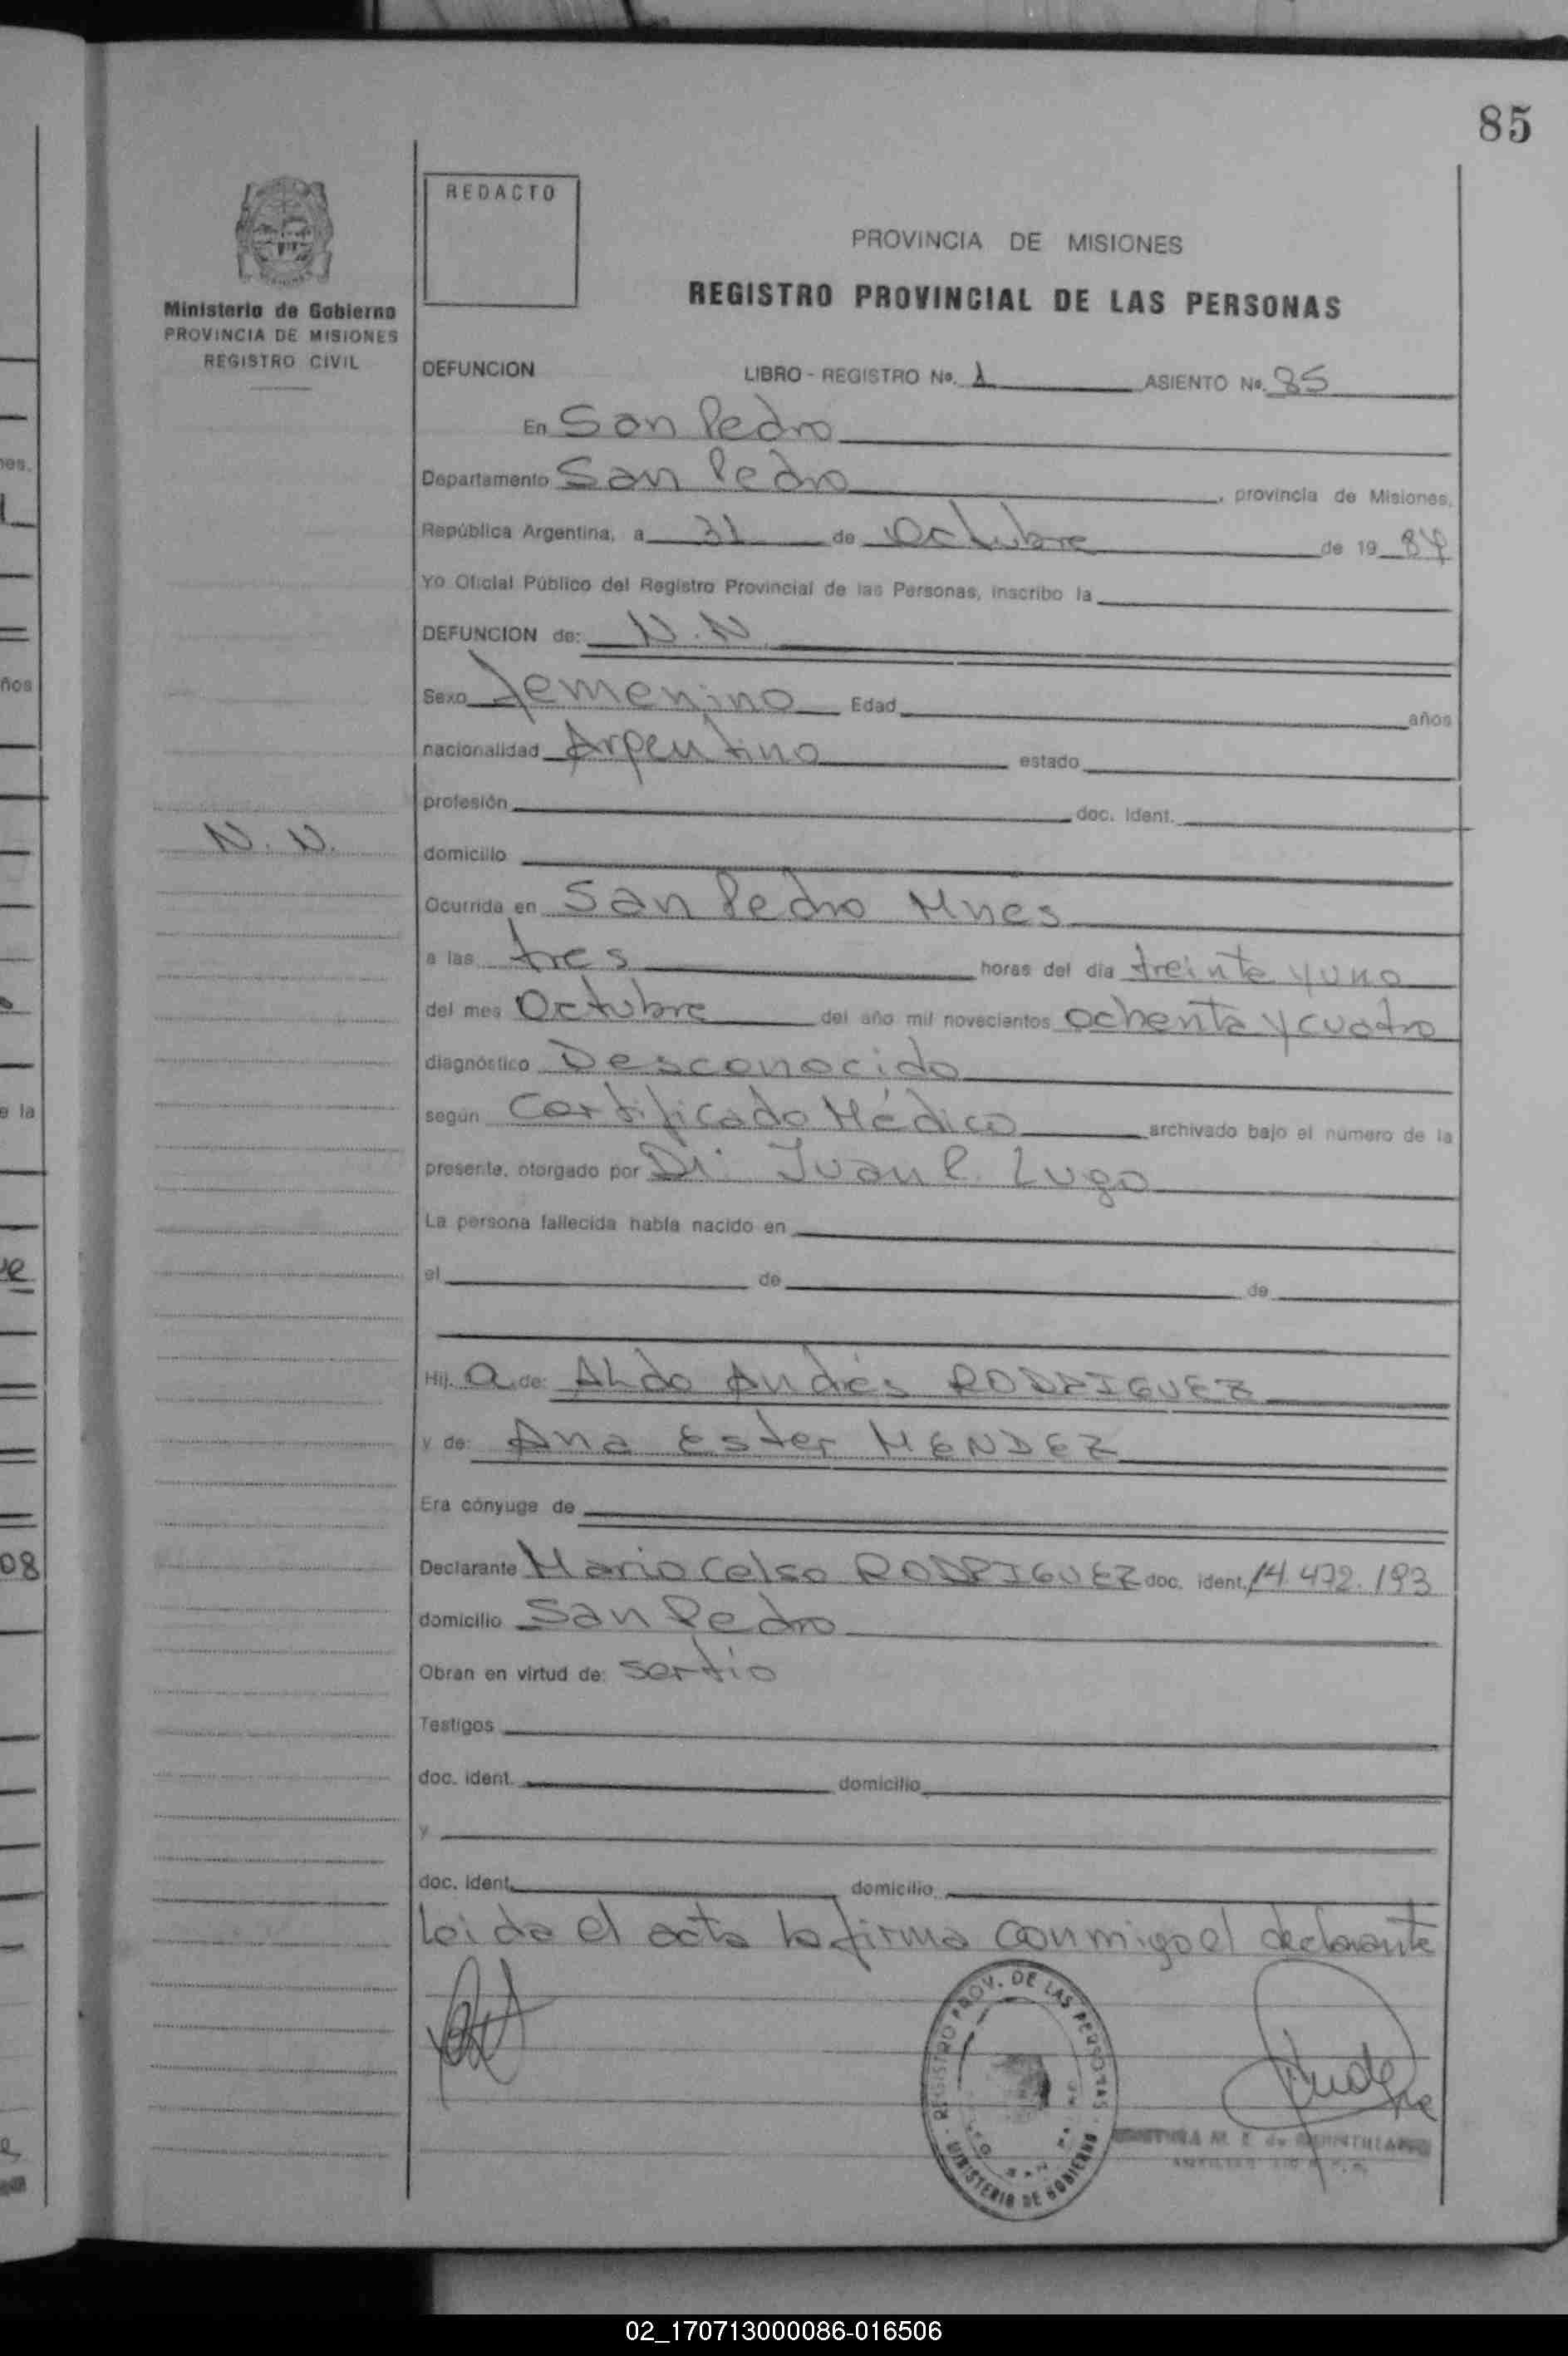 85
REDACTO
PROVINCIA DE MISIONES
REGISTRO PROVINCIAL DE LAS PERSONAS
Ministerio de Gobierno
PROVINCIA DE MISIONES
REGISTRO CIVIL
DEFUNCION LIBRO - REGISTRO No. 1 ASIENTO No. 85
En San Pedro
Departamento San Pedro, provincia de Misiones,
República Argentina, a 31 de Octubre de 19 84
Yo Oficial Público del Registro Provincial de las Personas, inscribo la
DEFUNCION de: N.N.
Sexo femenino Edad años
nacionalidad Argentino estado
profesión doc. ident.
N. N.
domicilio
Ocurrida en San Pedro Mnes
a las tres horas del día treinta y uno
del mes Octubre del año mil novecientos ochenta y cuatro
diagnóstico Desconocido
según Certificado Médico archivado bajo el número de la
presente, otorgado por Dr. Juan P. Lugo
La persona fallecida había nacido en
el de de
Hij. a de: Aldo Andrés RODRIGUEZ
y de: Ana Ester MENDEZ
Era cónyuge de
Declarante Mario Celso RODRIGUEZ doc. ident. 14.472.193
domicilio San Pedro
Obran en virtud de: sertio
Testigos
doc. ident. domicilio
y
doc. ident. domicilio
Leida el acta la firma conmigo el declarante
REGISTRO PROV. DE LAS PERSONAS
MINISTERIO DE GOBIERNO
nes.
ños
e la
08
02_170713000086-016506